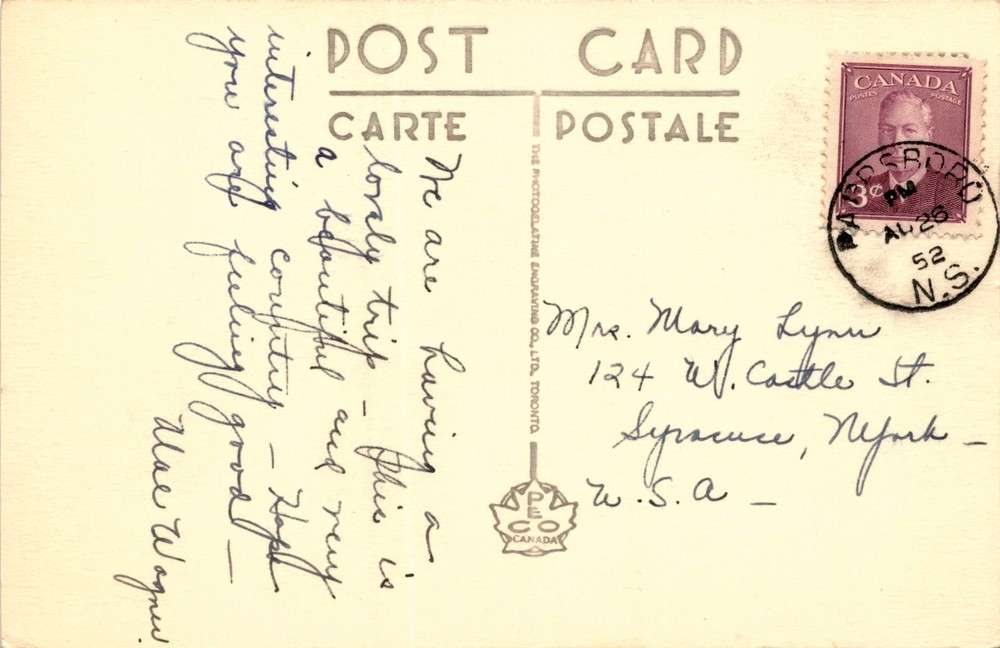 POST CARD
CARTE POSTALE
CANADA
POSTES POSTAGE
3¢
PARRSBORO
PM
AU 26
52
N.S.
We are having a
lovely trip – This is
a beautiful and very
interesting country – Hope
you are feeling good –
Mae Wagner.
THE PHOTOGELATINE ENGRAVING CO., LTD. TORONTO.
PECO
CANADA
Mrs. Mary Lynn
124 W. Castle St.
Syracuse, N York –
U. S. A –